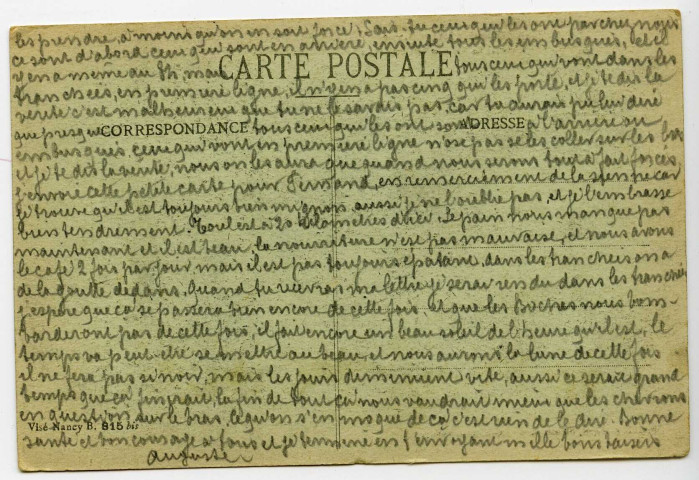 les prendre, à moins qu'on en soit forcé. Sais-tu ceux qui les ont par chez nous
ce sont d'abord ceux qui sont en arrière, ensuite tous les embusqués, et il
y en a même au
CARTE POSTALE
tous ceux qui vont dans les
tranchées, en première ligne, il n'y en a pas cinq qui les porte, et je te dis la
vérité c'est malheureux que tu ne le savais pas, car tu aurais pu lui dire
que presque
CORRESPONDANCE
tous ceux qui les ont sont
ADRESSE
à l'arrière ou
embusqués, ceux qui vont en première ligne n'ose pas se les coller sur les bras
et je te dis la vérité, nous on les aura que quand nous serons tout à fait forcés.
J'envoie cette petite carte pour Fernand, en remerciement de la sienne car
je trouve qu'il est toujours bien mignon aussi je ne l'oublie pas, et je l'embrasse
bien tendrement. Toul est à 20 kilomètres d'ici. Le pain nous manque pas
maintenant et il est beau, la nourriture n'est pas mauvaise, et nous avons
le café 2 fois par jour mais il est pas toujours épatant, dans les tranchées on a
de la goutte dedans. Quand tu recevras ma lettre je serai rendu dans les tranchées
j'espère que ça se passera bien encore de cette fois et que les Boches nous bom-
barderont pas de cette fois, il fait encore un beau soleil de l'heure qu'il est, le
temps va peut-être se mettre au beau, et nous aurons la lune de cette fois
il ne fera pas si noir, mais les jours diminuent vite, aussi ce serait grand
temps que ça finirait, la fin de tout ça nous vaudrait mieux que les chevrons
en question sur le bras, ce qu'on s'en moque de ça c'est rien de le dire. Bonne
Visé Nancy B. 815 bis
santé et bon courage à tous et je termine en t'envoyant mille bons baisers
Auguste